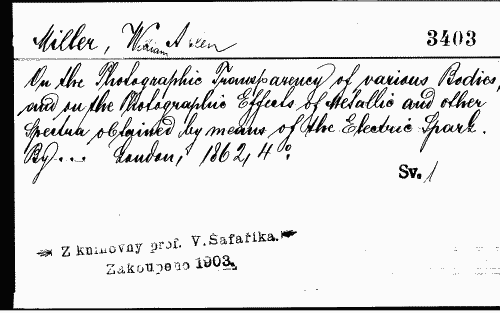 Miller, William Allen 3403
On the Photographic Transparency of various Bodies,
and on the Photographic Effects of Metallic and other
Spectra obtained by means of the Electric Spark.
By... London, 1862, 4°.
Sv. 1
Z knihovny prof. V. Šafaříka.
Zakoupeno 1903.